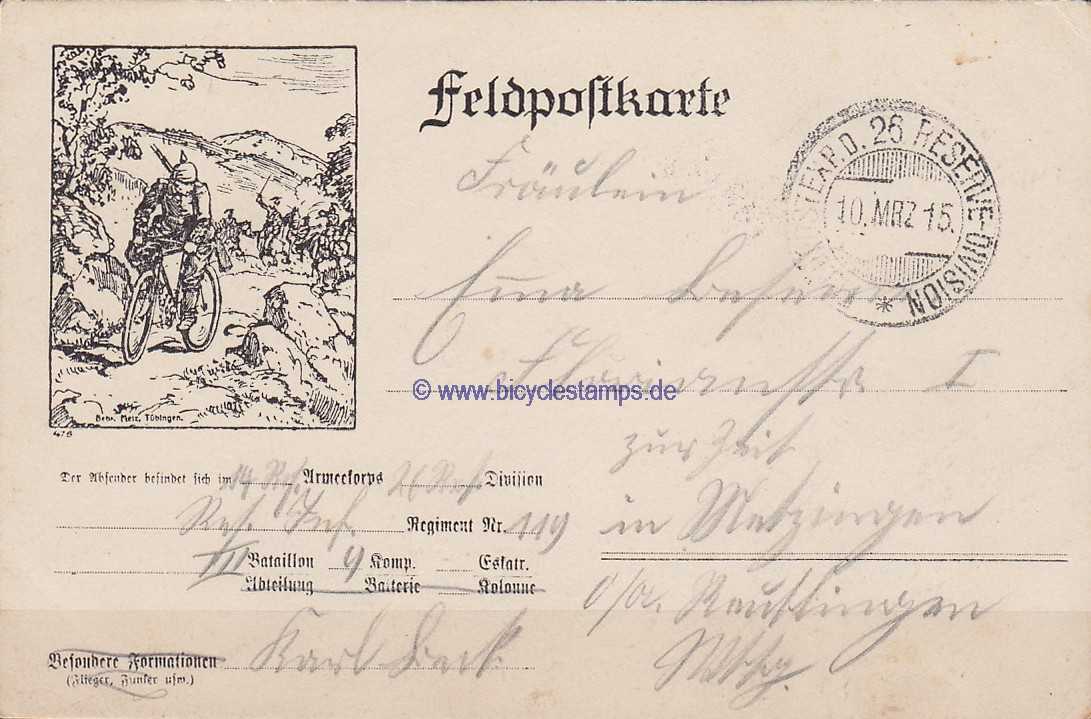 Feldpostkarte
K.W. FELDPOSTEXP. D. 26 RESERVE-DIVISION *
10. MRZ 15.
Fräulein
Emma
I
zur Zeit
in Metzingen
O/A. Reutlingen
Wttbg.
© www.bicyclestamps.de
Gebr. Metz, Tübingen.
478
Der Absender befindet sich im 14 Res. Armeekorps 26 Res. Division
Res. Inf. Regiment Nr. 119
III Bataillon 9 Komp. Eskatr.
Abteilung Batterie Kolonne
Karl Beck
Besondere Formationen
(Flieger, Funker usw.)